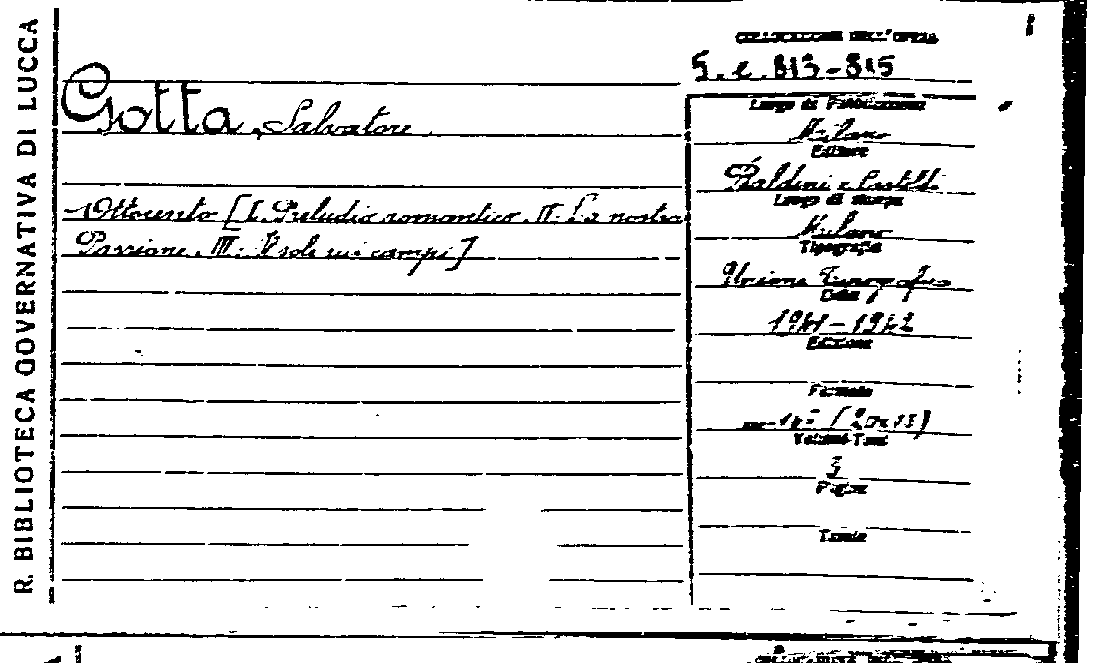 R. BIBLIOTECA GOVERNATIVA DI LUCCA
COLLOCAZIONE DELL'OPERA
5. e. 813-815
Gotta, Salvatore
Luogo di Pubblicazione
Milano
Editore
Baldini e Castoldi
Ottocento [I. Preludio romantico. II. La nostra
Passione. III. Il sole sui campi]
Luogo di stampa
Milano
Tipografia
Unione Tipografica
Data
1941-1942
Edizione
Formato
in-16º (20x13)
Volumi-Tomi
3
Pagine
Tavole
COLLOCAZIONE DELL'OPERA